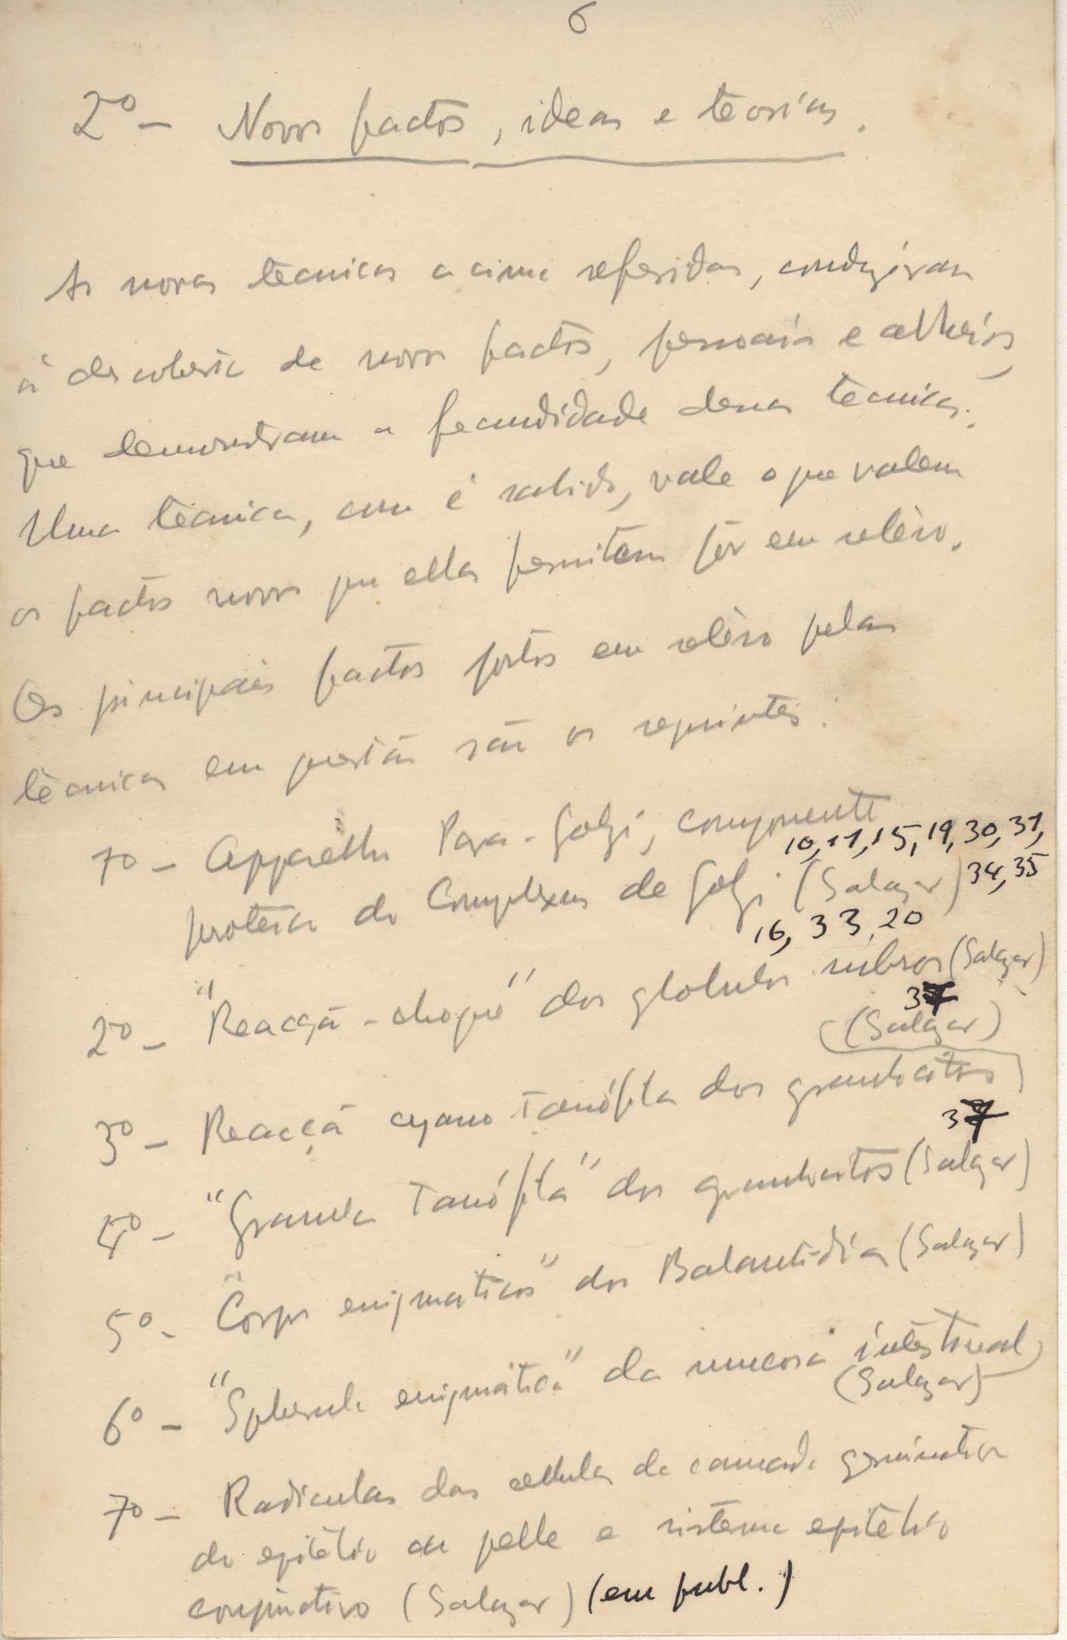 6
2º - Novos factos, ideas e teorias.
As novas tècnicas acima referidas, conduziram
á descoberta de novos factos, pessoais e alheios,
que demonstram a fecundidade dessas tècnicas.
Uma tècnica, como é sabido, vale o que valem
os factos novos que ellas permitem pôr em relêvo.
Os principaes factos postos em relêvo pelas
tècnicas em questão são os seguintes:
1º - Apparelho Para-Golgi, componente
10, 11, 15, 19, 30, 31,
proteica do Complexus de Golgi (Salazar) 34, 35
16, 33, 20
2º - "Reacção-choque" dos globulos rubros (Salazar)
(Salazar)
3º - Reacçã cyano tanófila dos granulocitos
4º - "Granula Tanófila" dos granulocitos (Salazar)
5º - "Corpos enigmaticos" dos Balantidia (Salazar)
6º - "Spherula enigmática" da mucosa intestinal
(Salazar)
7º - Radiculas das cellulas da camada germinativa
do epitélio da pelle e sistema epitelio
conjuntivo (Salazar) (em publ.)